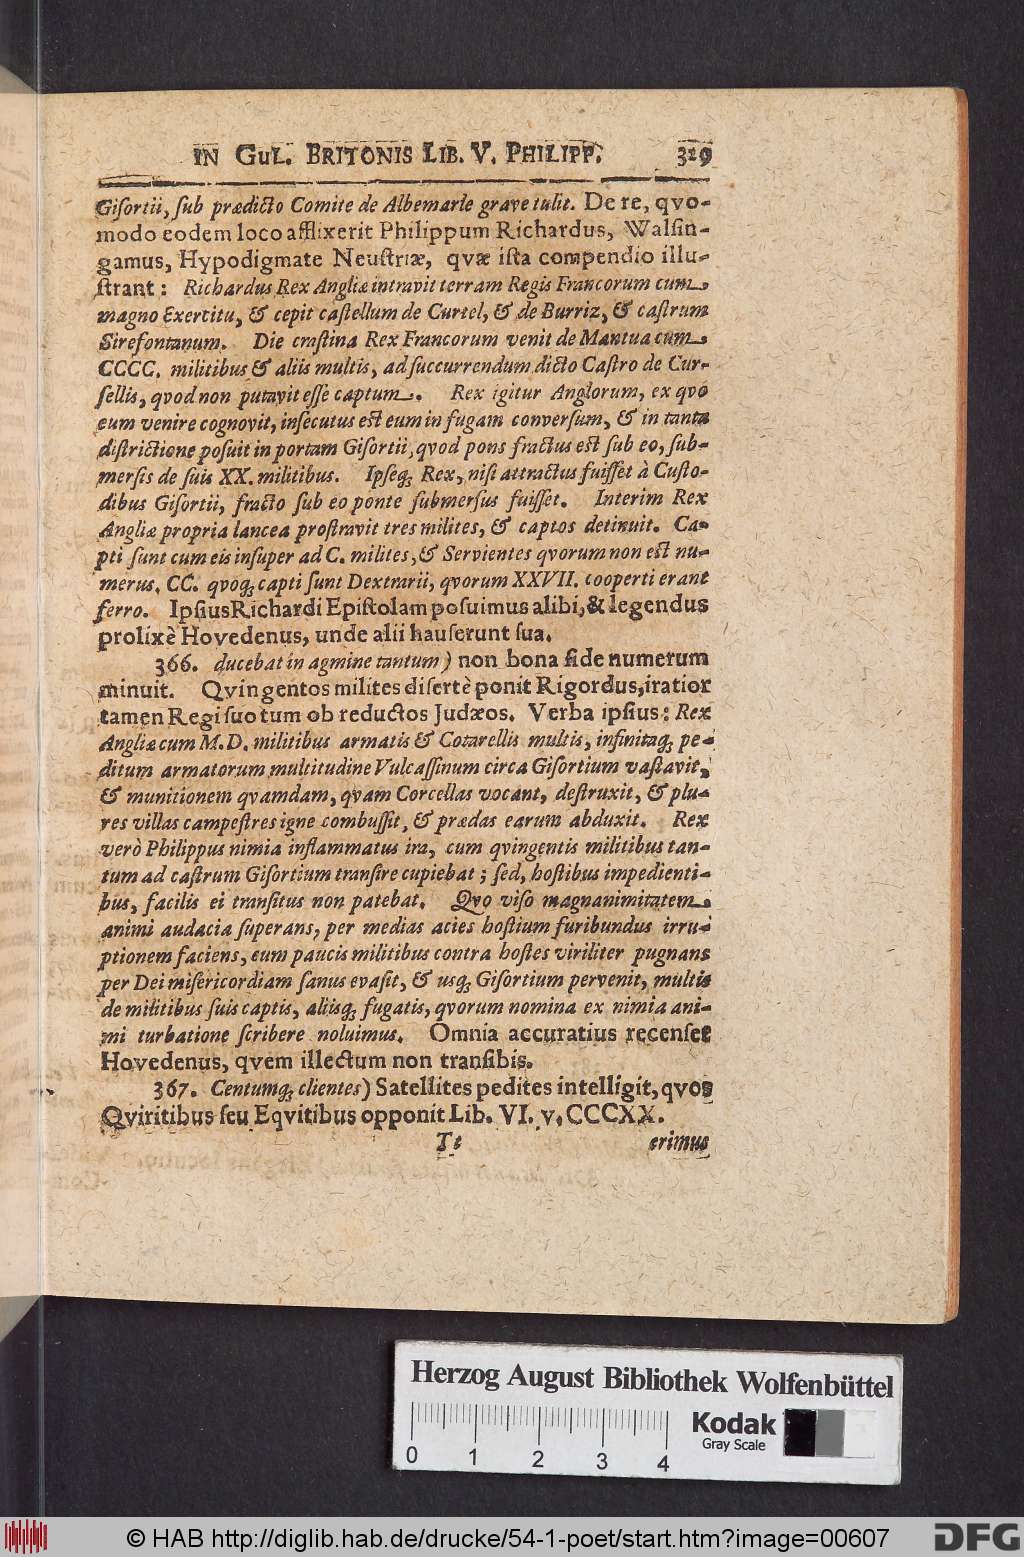 IN GUL. BRITONIS LIB. V. PHILIPP. 319
Giſortii, ſub prædicto Comite de Albemarle grave tulit. De re, qvo-
modo eodem loco afflixerit Philippum Richardus, Walſin-
gamus, Hypodigmate Neuſtriæ, qvæ iſta compendio illu-
ſtrant: Richardus Rex Angliæ intravit terram Regis Francorum cum
magno Exercitu, & cepit caſtellum de Curtel, & de Burriz, & caſtrum
Sirefontanum. Die craſtina Rex Francorum venit de Mantua cum
CCCC. militibus & aliis multis, ad ſuccurrendum dicto Caſtro de Cur-
ſellis, qvod non putavit eſſe captum. Rex igitur Anglorum, ex qvo
eum venire cognovit, inſecutus eſt eum in fugam converſum, & in tanta
diſtrictione poſuit in portam Giſortii, qvod pons fractus eſt ſub eo, ſub-
merſis de ſuis XX. militibus. Ipſeq; Rex, niſi attractus fuiſſet à Cuſto-
dibus Giſortii, fracto ſub eo ponte ſubmerſus fuiſſet. Interim Rex
Angliæ propria lancea proſtravit tres milites, & captos detinuit. Ca-
pti ſunt cum eis inſuper ad C. milites, & Servientes qvorum non eſt nu-
merus. CC. qvoq; capti ſunt Dextrarii, qvorum XXVII. cooperti erant
ferro. Ipſius Richardi Epiſtolam poſuimus alibi, & legendus
prolixè Hovedenus, unde alii hauſerunt ſua.
366. ducebat in agmine tantum) non bona fide numerum
minuit. Qvingentos milites diſertè ponit Rigordus, iratior
tamen Regi ſuo tum ob reductos Judæos. Verba ipſius: Rex
Angliæ cum M.D. militibus armatis & Cotarellis multis, infinitaq; pe-
ditum armatorum multitudine Vulcaſſinum circa Giſortium vaſtavit,
& munitionem qvamdam, qvam Corcellas vocant, deſtruxit, & plu-
res villas campeſtres igne combuſſit, & prædas earum abduxit. Rex
verò Philippus nimia inflammatus ira, cum qvingentis militibus tan-
tum ad caſtrum Giſortium tranſire cupiebat; ſed, hoſtibus impedienti-
bus, facilis ei tranſitus non patebat. Qvo viſo magnanimitatem
animi audacia ſuperans, per medias acies hoſtium furibundus irru-
ptionem faciens, cum paucis militibus contra hoſtes viriliter pugnans
per Dei miſericordiam ſanus evaſit, & usq; Giſortium pervenit, multis
de militibus ſuis captis, aliisq; fugatis, qvorum nomina ex nimia ani-
mi turbatione ſcribere noluimus. Omnia accuratius recenſet
Hovedenus, qvem illectum non tranſibis.
367. Centumq; clientes) Satellites pedites intelligit, qvos
Qviritibus ſeu Eqvitibus opponit Lib. VI. v. CCCXX.
Tt erimus
Herzog August Bibliothek Wolfenbüttel
0 1 2 3 4
Kodak
Gray Scale
© HAB http://diglib.hab.de/drucke/54-1-poet/start.htm?image=00607
DFG